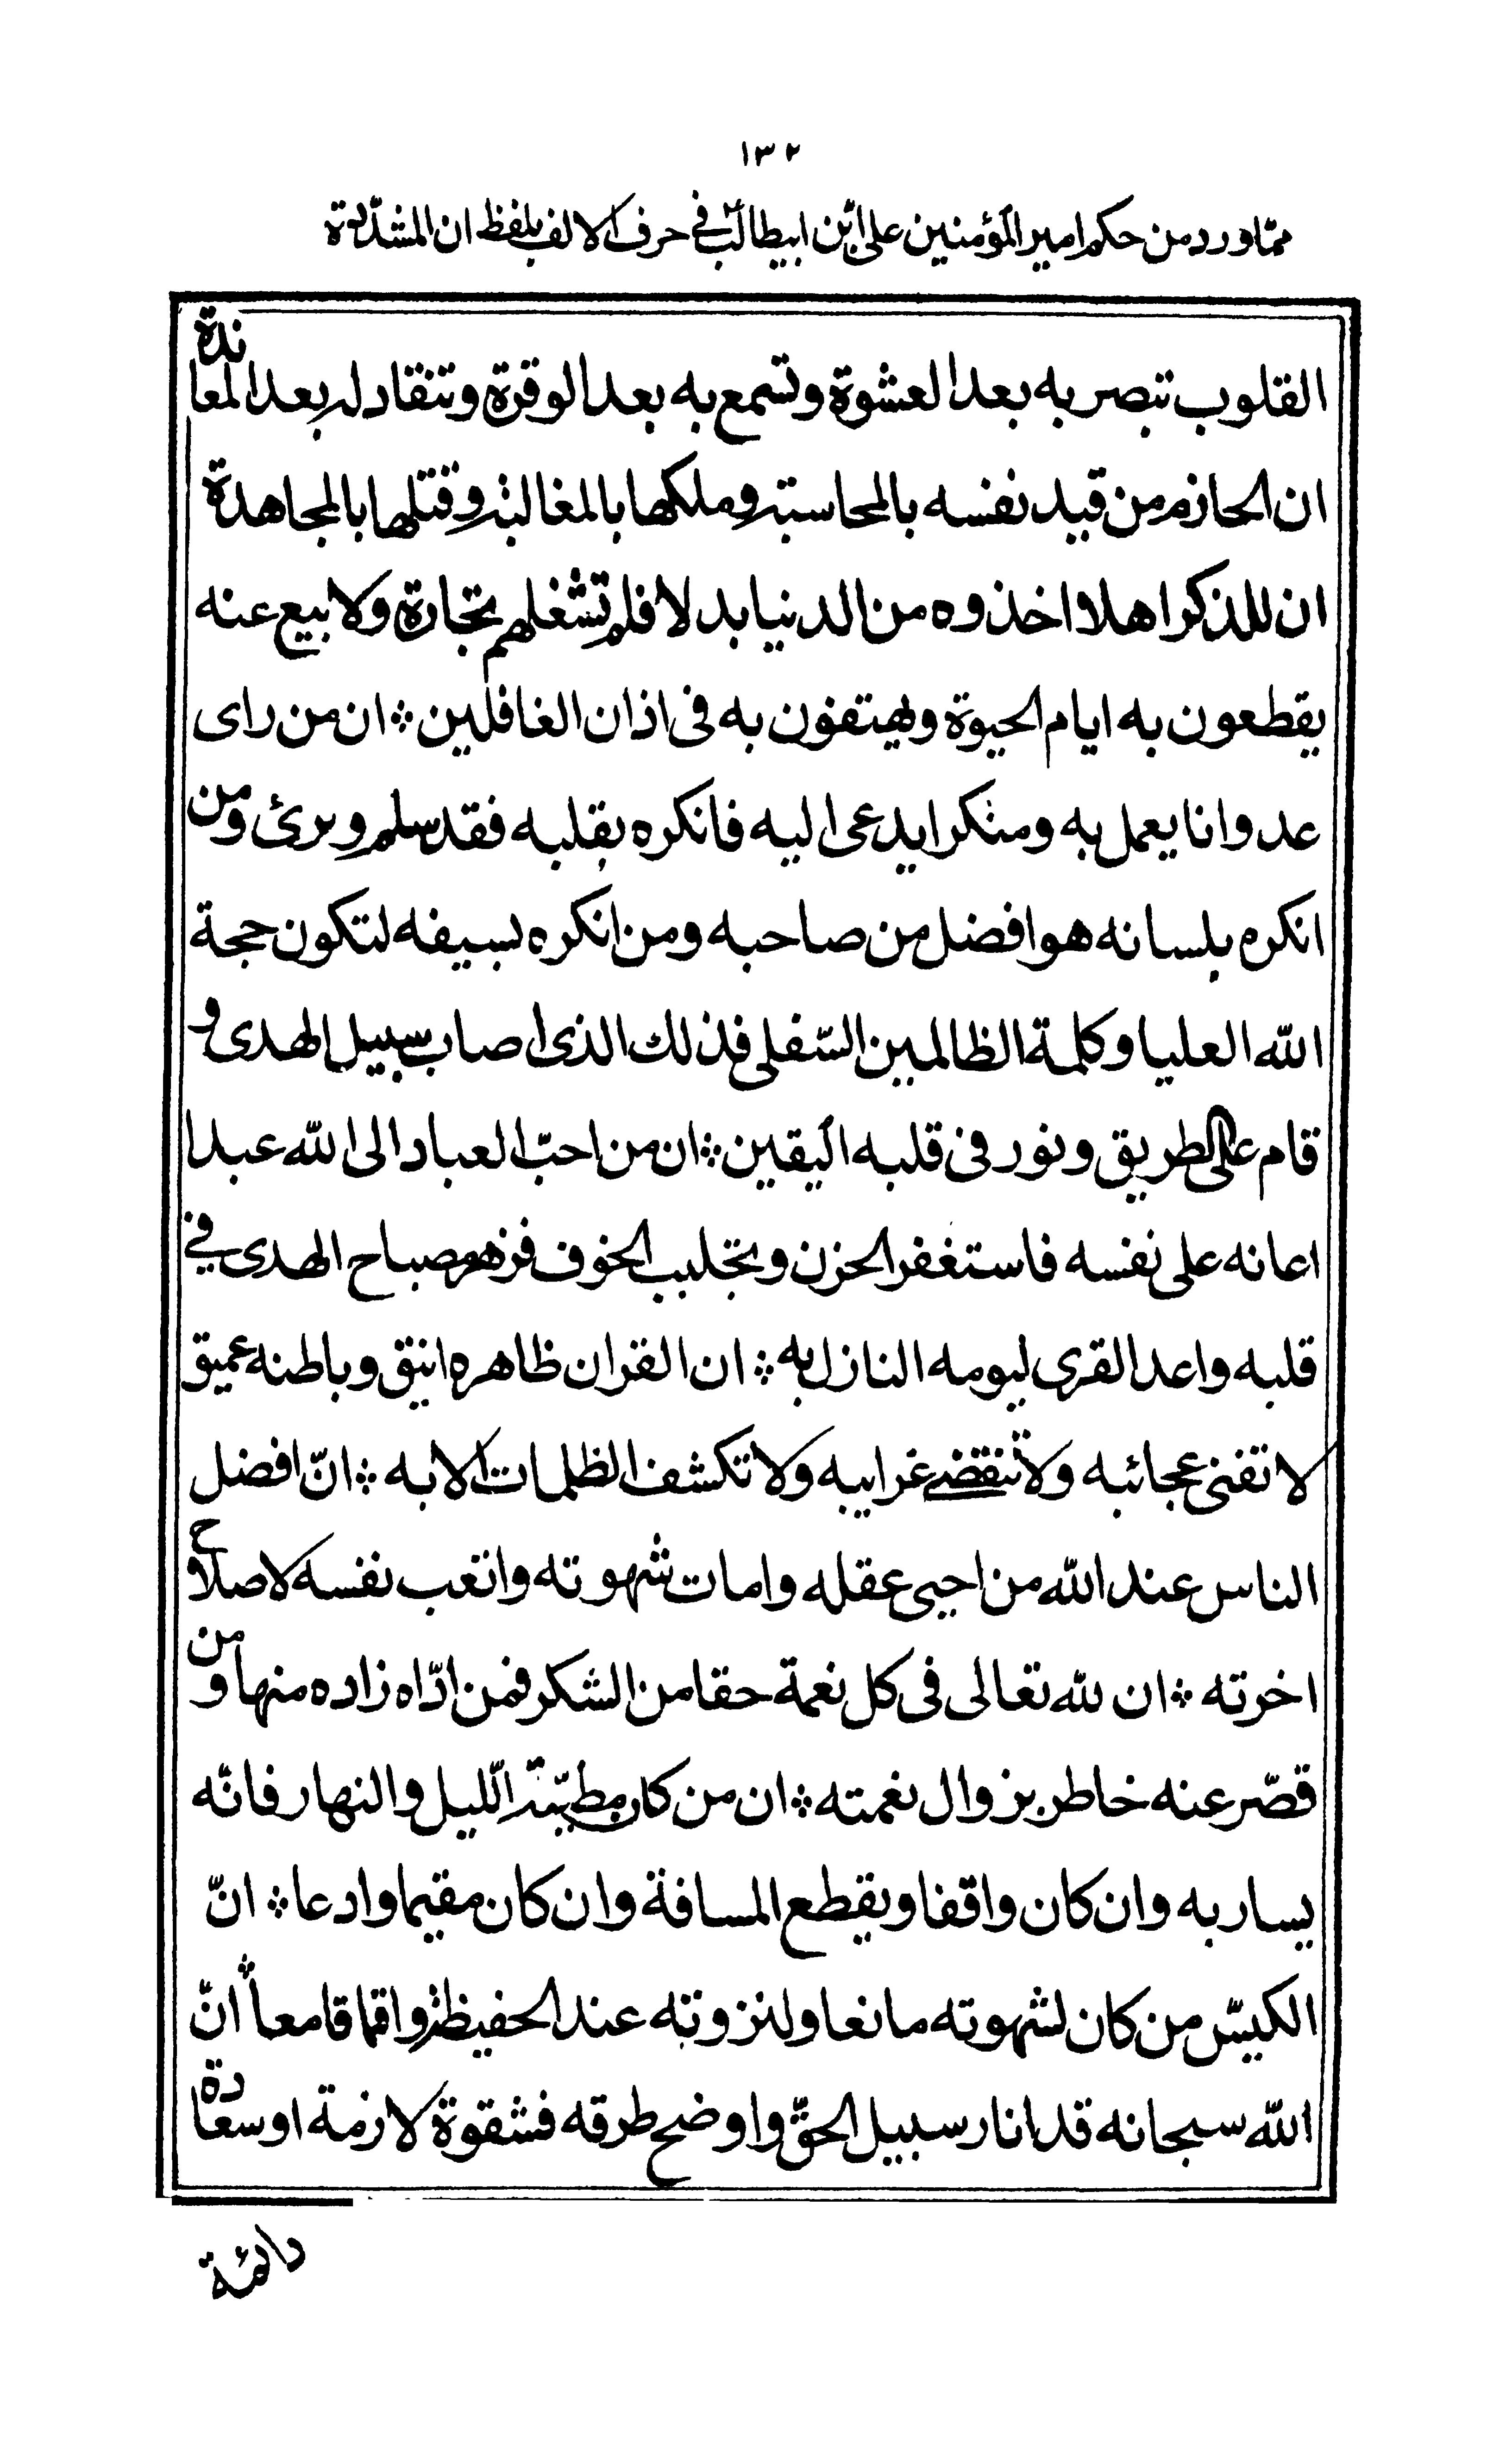 ١٣٢
مما ورد من حكم امير المؤمنين على ابن ابيطالب في حرف الالف بلفظ ان المشددة
القلوب تبصر به بعد العشوة وتسمع به بعد الوقرة وتنقاد له بعد المعاندة
ان الحازم من قيد نفسه بالمحاسبة وملكها بالمغالبة وقتلها بالمجاهدة
ان للذكر اهلا اخذوه من الدنيا بدلا فلم تشغلهم تجارة ولا بيع عنه
يقطعون به ايام الحيوة ويهتفون به فى اذان الغافلين ⁘ ان من راى
عدوانا يعمل به ومنكرا يدعى اليه فانكره بقلبه فقد سلم وبرئ ومن
انكره بلسانه هو افضل من صاحبه ومن انكره بسيفه لتكون حجة
الله العليا وكلمة الظالمين السّفلى فذلك الذى اصاب سبيل الهدى و
قام على الطريق ونور فى قلبه اليقين ⁘ ان من احبّ العباد الى الله عبدا
اعانه على نفسه فاستغفر الحزن وتجلبب الخوف فزهر مصباح الهدى في
قلبه واعد القرى ليومه النازل به ⁘ ان القران ظاهره انيق وباطنه عميق
لا تفنى عجائبه ولا تنقضے غرايبه ولا تكشف الظلمات الا به ⁘ انّ افضل
الناس عند الله من احيى عقله وامات شهوته واتعب نفسه لاصلاح
اخرته ⁘ ان لله تعالى فى كل نعمة حقا من الشكر فمن ادّاه زاده منها ومن
قصّر عنه خاطر بزوال نعمته ⁘ ان من كان مطيّته الّليل والنهار فانّه
يسار به وان كان واقفا ويقطع المسافة وان كان مقيما وادعا ⁘ انّ
الكيسّ من كان لشهوته مانعا ولنزوته عند الحفيظة واقما قامعا ⁘ انّ
الله سبحانه قد انار سبيل الحقّ واوضح طرقه فشقوة لازمة او سعادة
دائمة